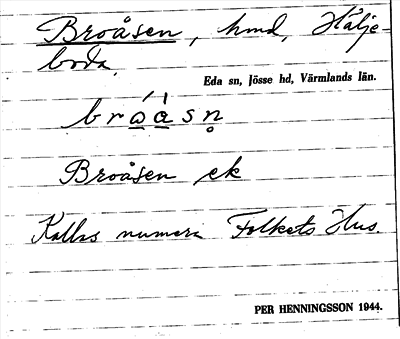 Broåsen, hmd, Hälje-
boda.
Eda sn, Jösse hd, Värmlands län.
bro̱å̱sn̥
Broåsen ek
Kallas numera Folkets Hus.
PER HENNINGSSON 1944.